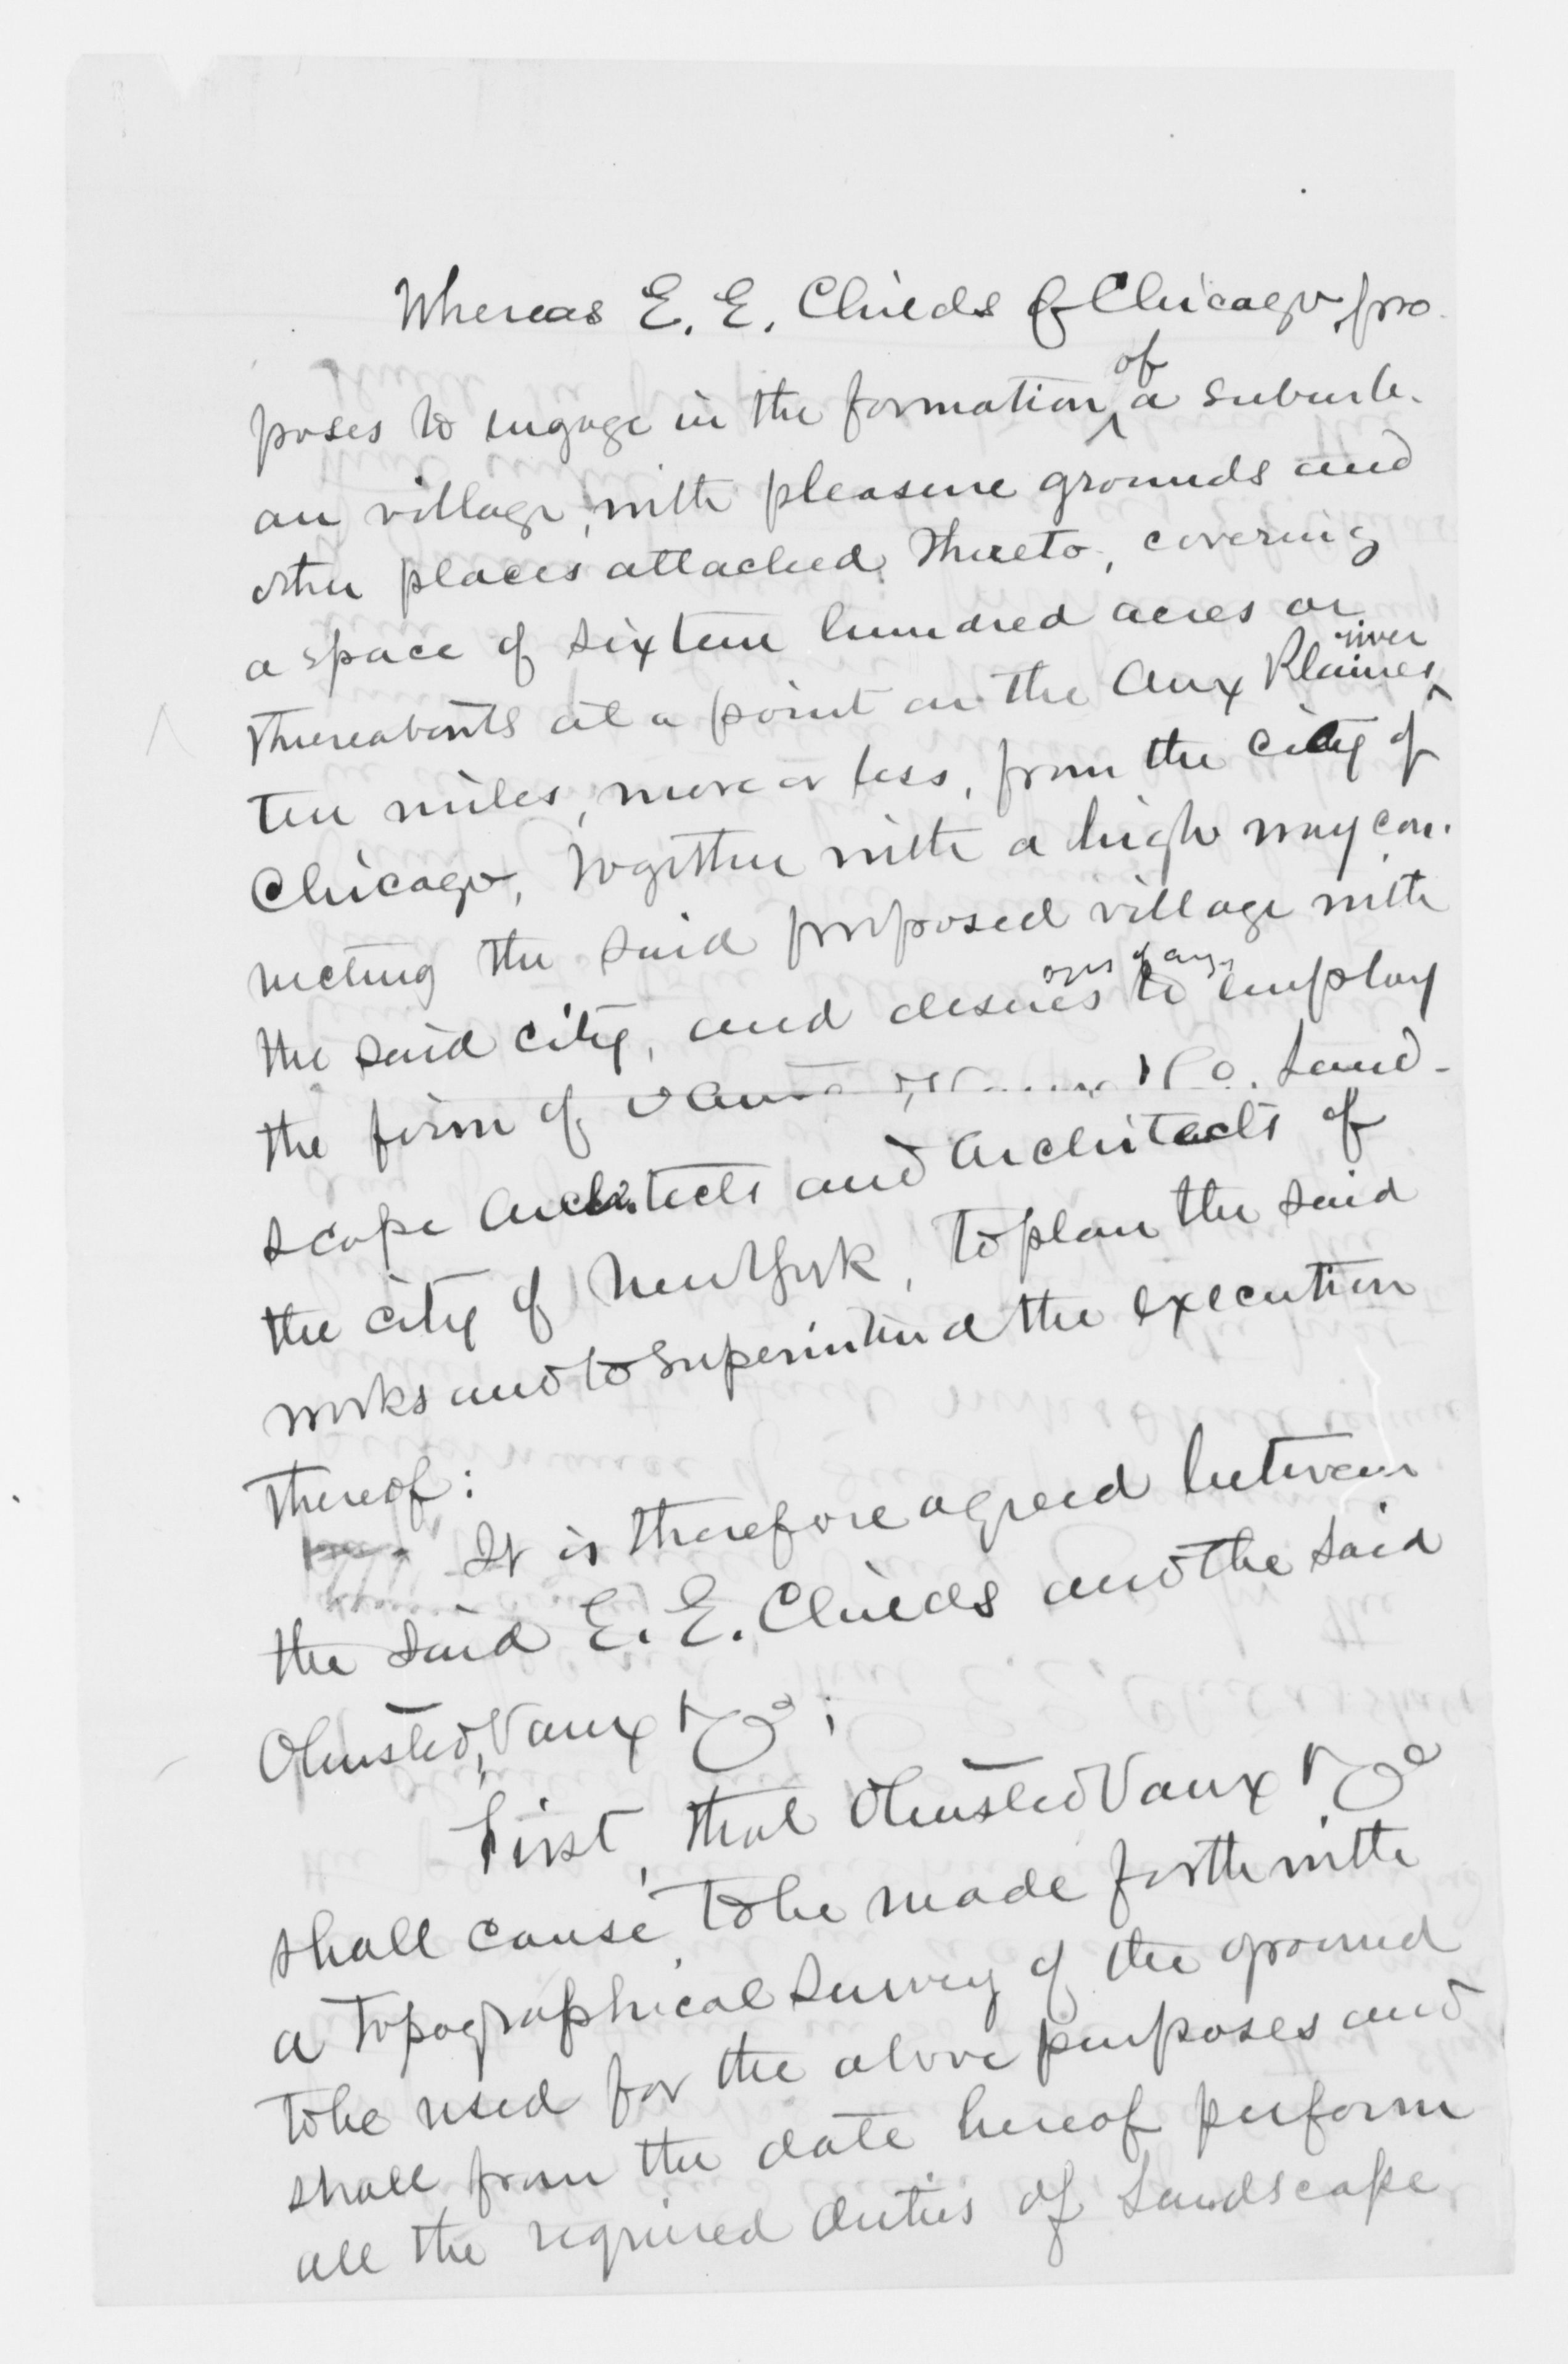 Whereas E. E. Childs of Chicago, pro-
poses to engage in the formation of a suburb-
an village, with pleasure grounds and
other places attached thereto, covering
a space of sixteen hundred acres or
thereabouts at a point on the Aux Plaines river
ten miles, more or less, from the city of
Chicago, together with a high way con-
necting the said proposed village with
the said city, and desires to employ
the firm of Land-
scape Architects and Architects of
the city of New York, to plan the said
works and to superintend the execution
thereof:
It is therefore agreed between
the said E. E. Childs and the said
Olmsted, Vaux & Co;
First, that Olmsted Vaux & Co
shall cause to be made forthwith
a topographical survey of the ground
to be used for the above purposes and
shall from the date hereof perform
all the required duties of Landscape